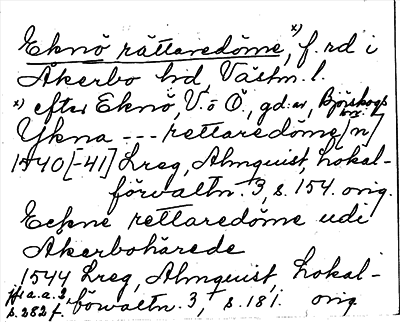 Eknö rättaredöme,x) f. rd i
Åkerbo hd, Västm. l.
x) efter Eknö, V. o Ö., gd:ar, Björskogs
Ykna --- rettaredöme[n]
1540[-41] Lreg, Almquist, Lokal-
förvaltn. 3, s. 154. orig.
Eckne rettaredöme udi
Åkerbohärede
1544 Lreg, Almquist, Lokal-
förvaltn. 3, s. 181. orig
jfr a.a. 3,
s. 282 f.